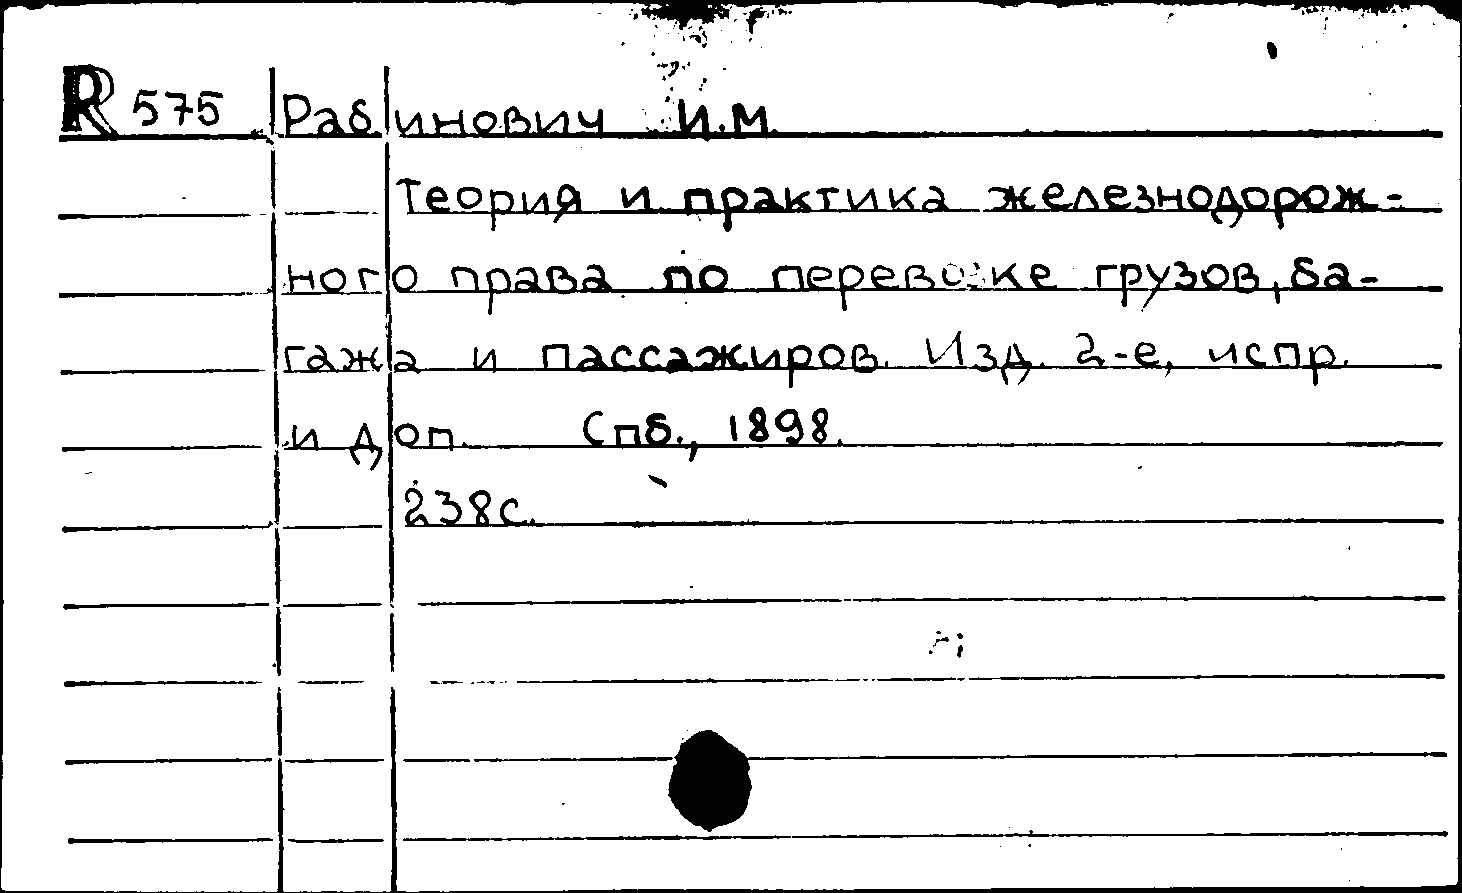 R 575 Рабинович И.М.
Теория и практика железнодорож-
ного права по перевозке грузов, ба-
гажа и пассажиров. Изд. 2-е, испр.
и доп. Спб., 1898.
238с.